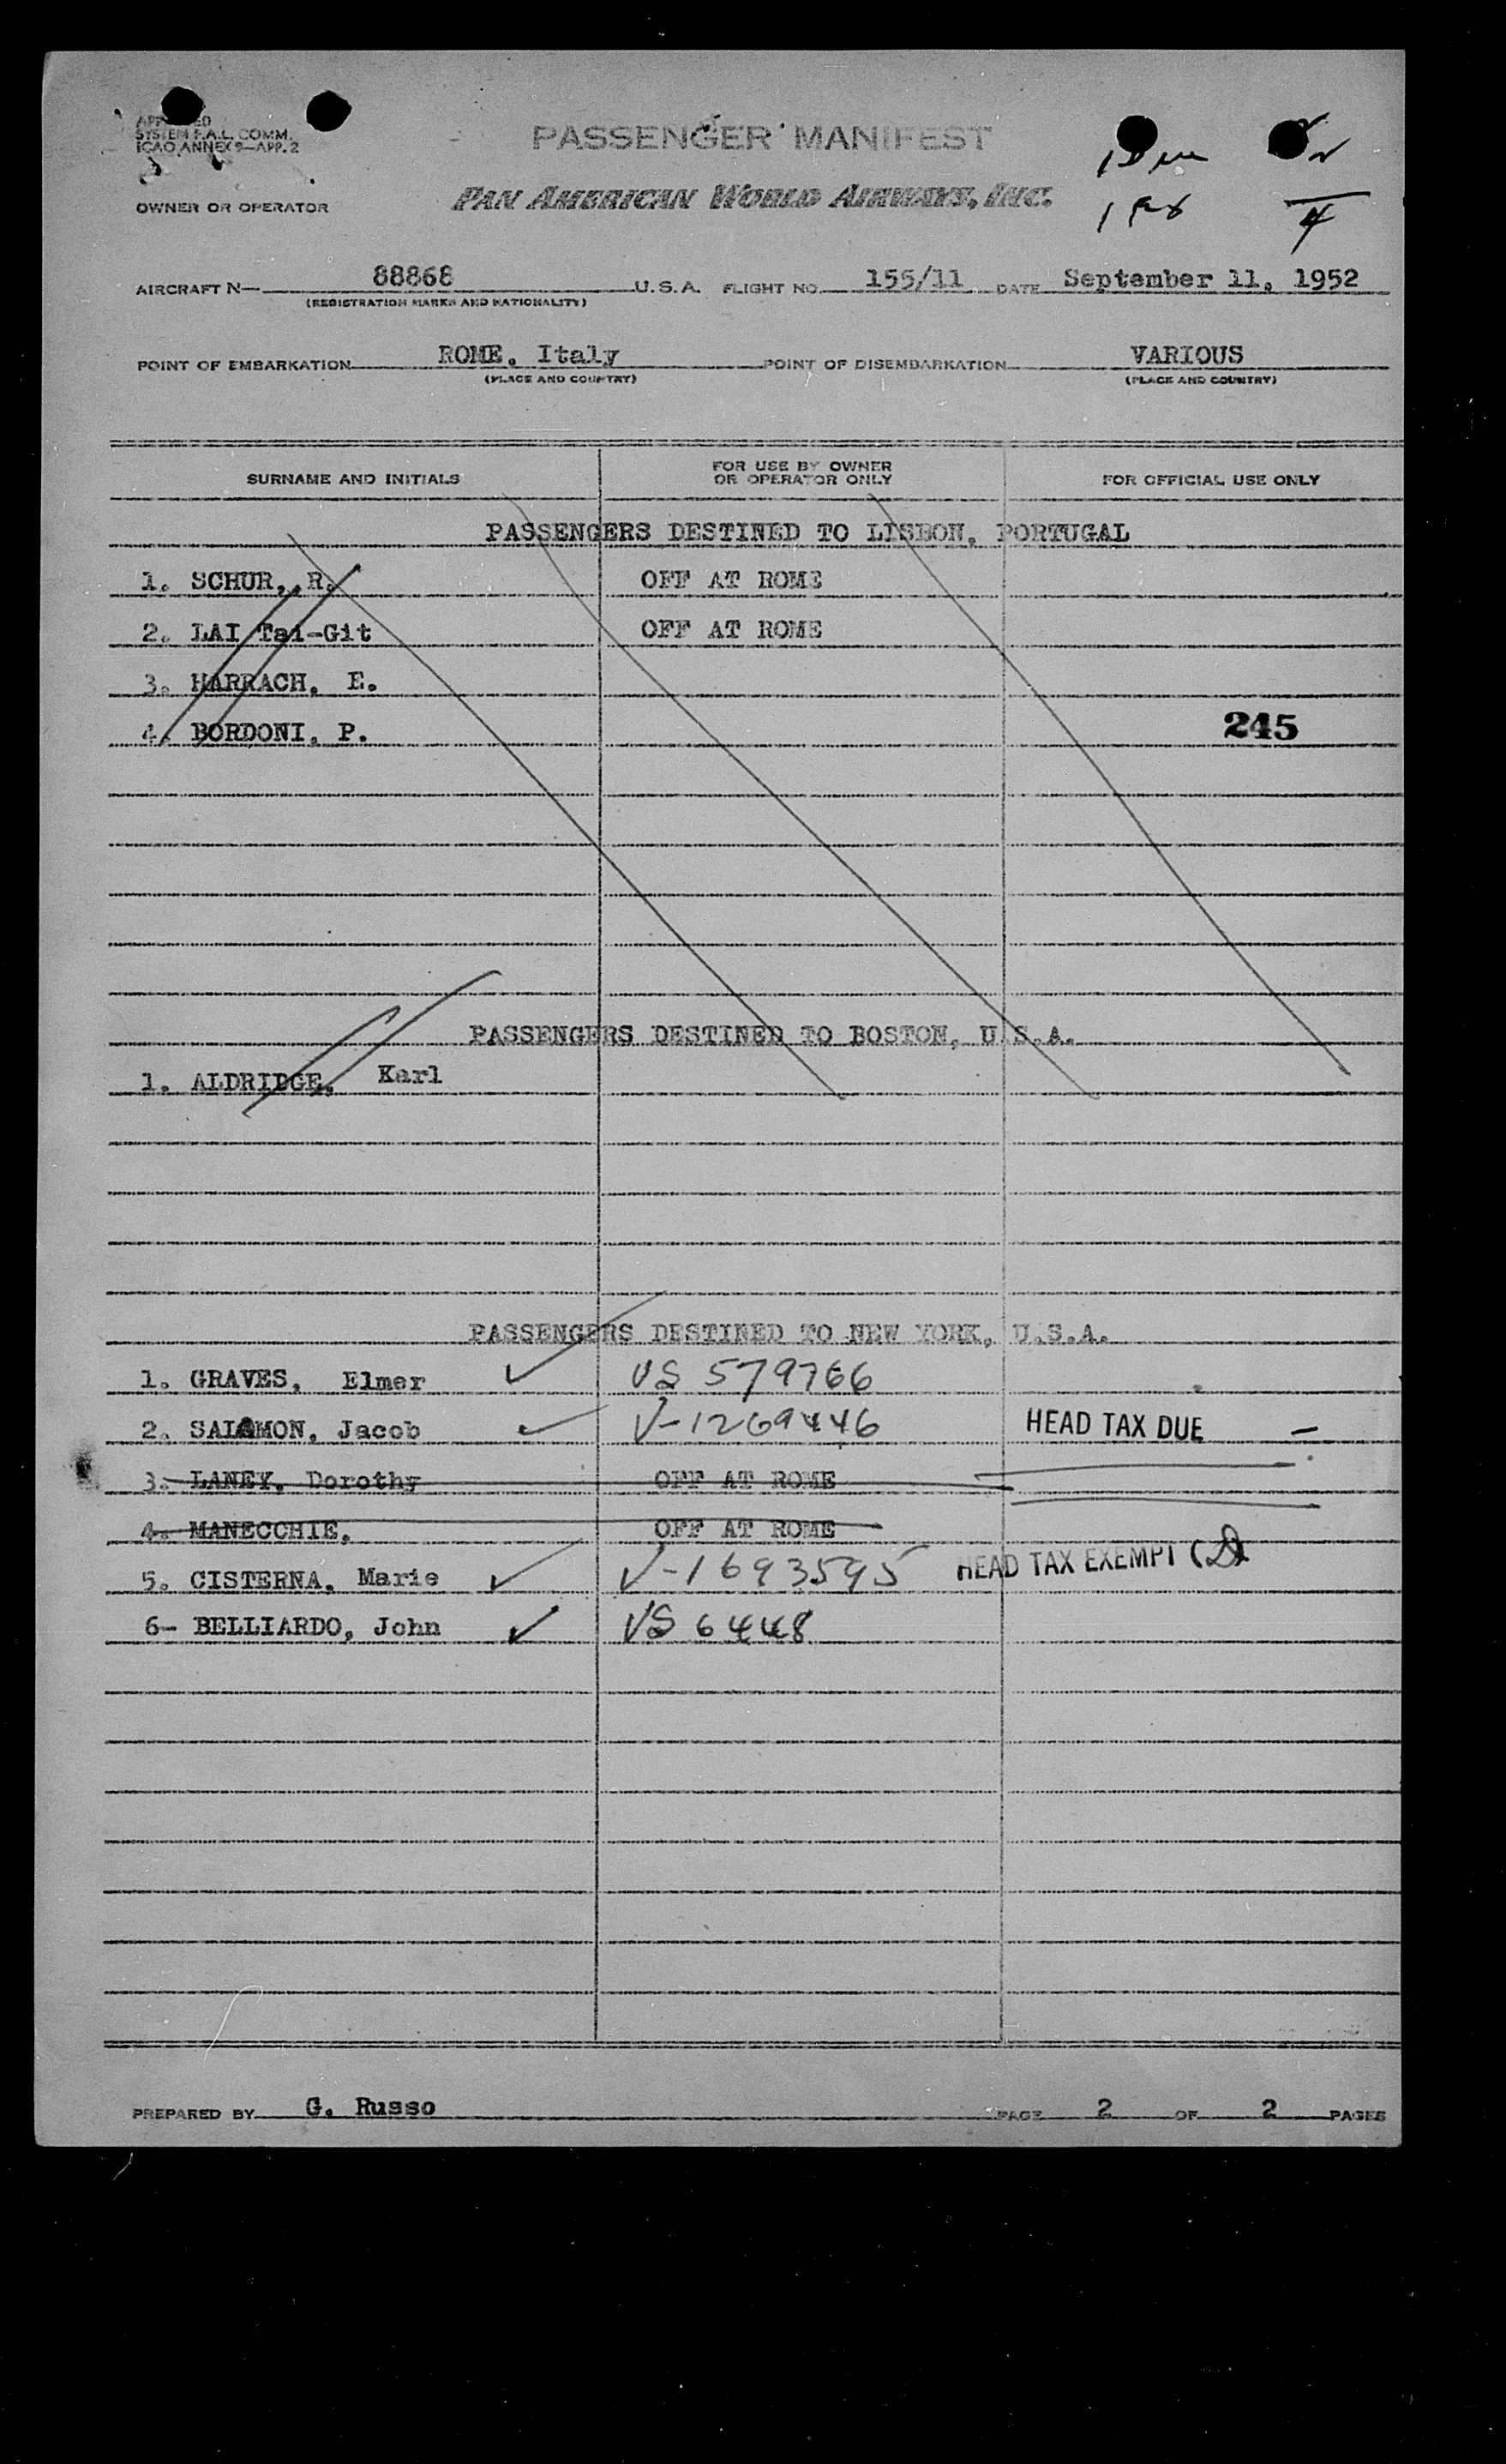 SYSTEM F.A.L. COMM.
ICAO ANNEX 9—APP. 2
PASSENGER MANIFEST
OWNER OR OPERATOR
PAN AMERICAN WORLD AIRWAYS, INC.
4
AIRCRAFT N— 88868 U.S.A. FLIGHT NO. 155/11 DATE September 11, 1952
(REGISTRATION MARKS AND NATIONALITY)
POINT OF EMBARKATION ROME, Italy POINT OF DISEMBARKATION VARIOUS
(PLACE AND COUNTRY) (PLACE AND COUNTRY)
SURNAME AND INITIALS FOR USE BY OWNER OR OPERATOR ONLY FOR OFFICIAL USE ONLY
PASSENGERS DESTINED TO LISBON, PORTUGAL
1. SCHUR, R. OFF AT ROME
2. LAI Tai-Git OFF AT ROME
3. HARRACH, E.
4. BORDONI, P. 245
PASSENGERS DESTINED TO BOSTON, U.S.A.
1. ALDRIDGE, Karl
PASSENGERS DESTINED TO NEW YORK, U.S.A.
1. GRAVES, Elmer ✓ US 579766
2. SALAMON, Jacob ✓ V-1269446 HEAD TAX DUE —
3. LANEY, Dorothy OFF AT ROME
4. MANECCHIE, OFF AT ROME
5. CISTERNA, Marie ✓ V-1693595 HEAD TAX EXEMPT
6- BELLIARDO, John ✓ US 6448
PREPARED BY G. Russo PAGE 2 OF 2 PAGES